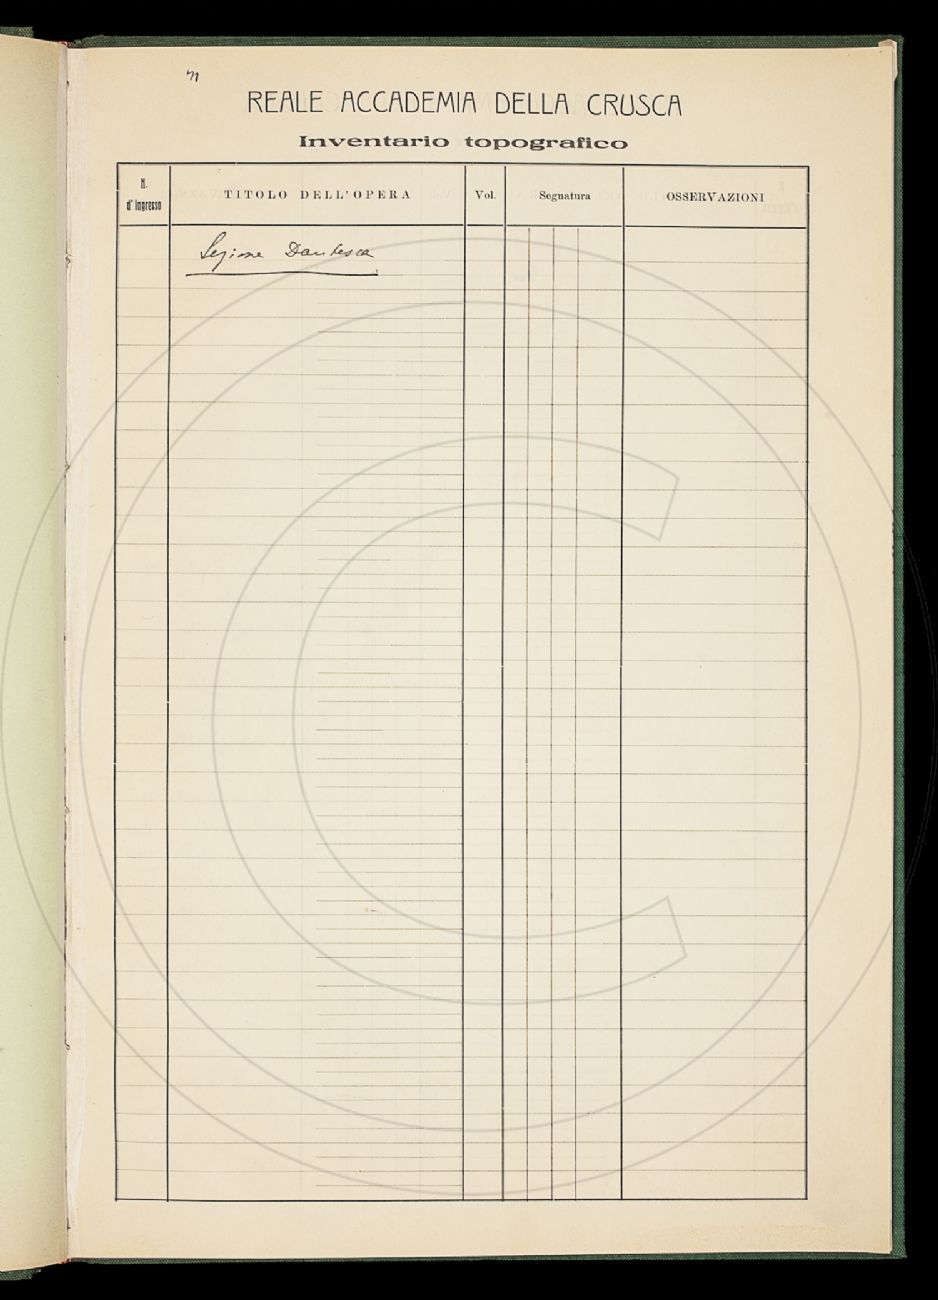 REALE ACCADEMIA DELLA CRUSCA
Inventario topografico
N. d'Ingresso
TITOLO DELL'OPERA
Vol.
Segnatura
OSSERVAZIONI
Sezione Dantesca